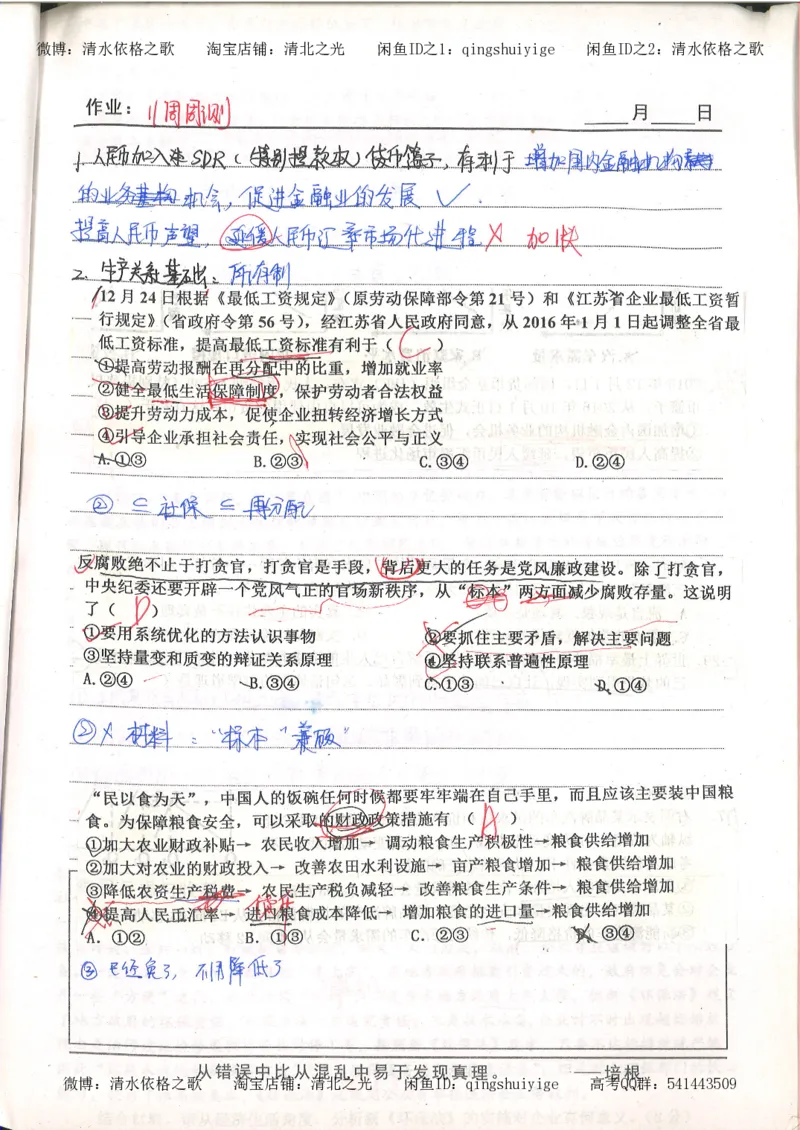 微博：清水依格之歌 淘宝店铺：清北之光 闲鱼ID之1：qingshuiyige 闲鱼ID之2：清水依格之歌
作业：11周周测 ____月____日
1. 人民币加入准SDR（特别提款权）货币篮子，有利于 增加国内金融机构
的业务 机会，促进金融业的发展 ✓.
提高人民币声望，延缓人民币汇率市场化进程 × 加快
2. 生产关系基础：所有制
12月24日根据《最低工资规定》（原劳动保障部令第21号）和《江苏省企业最低工资暂
行规定》（省政府令第56号），经江苏省人民政府同意，从2016年1月1日起调整全省最
低工资标准，提高最低工资标准有利于（ C ）
①提高劳动报酬在再分配中的比重，增加就业率
②健全最低生活保障制度，保护劳动者合法权益
③提升劳动力成本，促使企业扭转经济增长方式
④引导企业承担社会责任，实现社会公平与正义
A.①③ B.②③ C.③④ D.②④
② ⊆ 社保 ⊆ 再分配
反腐败绝不止于打贪官，打贪官是手段，背后更大的任务是党风廉政建设。除了打贪官，
中央纪委还要开辟一个党风气正的官场新秩序，从“标本”两方面减少腐败存量。这说明
了（ D ）
①要用系统优化的方法认识事物 ②要抓住主要矛盾，解决主要问题
③坚持量变和质变的辩证关系原理 ④坚持联系普遍性原理
A.②④ B.③④ C.①③ D.①④
②× 材料：“标本”兼顾”
“民以食为天”，中国人的饭碗任何时候都要牢牢端在自己手里，而且应该主要装中国粮
食。为保障粮食安全，可以采取的财政政策措施有（ A ）
①加大农业财政补贴→ 农民收入增加→ 调动粮食生产积极性→粮食供给增加
②加大对农业的财政投入→ 改善农田水利设施→ 亩产粮食增加→ 粮食供给增加
③降低农资生产税费→ 农民生产税负减轻→ 改善粮食生产条件→ 粮食供给增加
④提高人民币汇率→ 进口粮食成本降低→ 增加粮食的进口量→粮食供给增加
A. ①② B. ①③ C. ②③ D. ③④
③ 已经免了，不用降低了
从错误中比从混乱中易于发现真理。 ——培根
微博：清水依格之歌 淘宝店铺：清北之光 闲鱼ID：qingshuiyige 高考QQ群：541443509